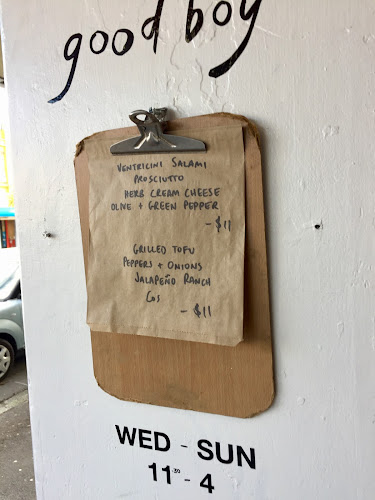 good boy
VENTRICINI SALAMI
PROSCIUTTO
HERB CREAM CHEESE
OLIVE + GREEN PEPPER
- $11
GRILLED TOFU
PEPPERS + ONIONS
JALAPEÑO RANCH
COS
- $11
WED - SUN
11·30 - 4